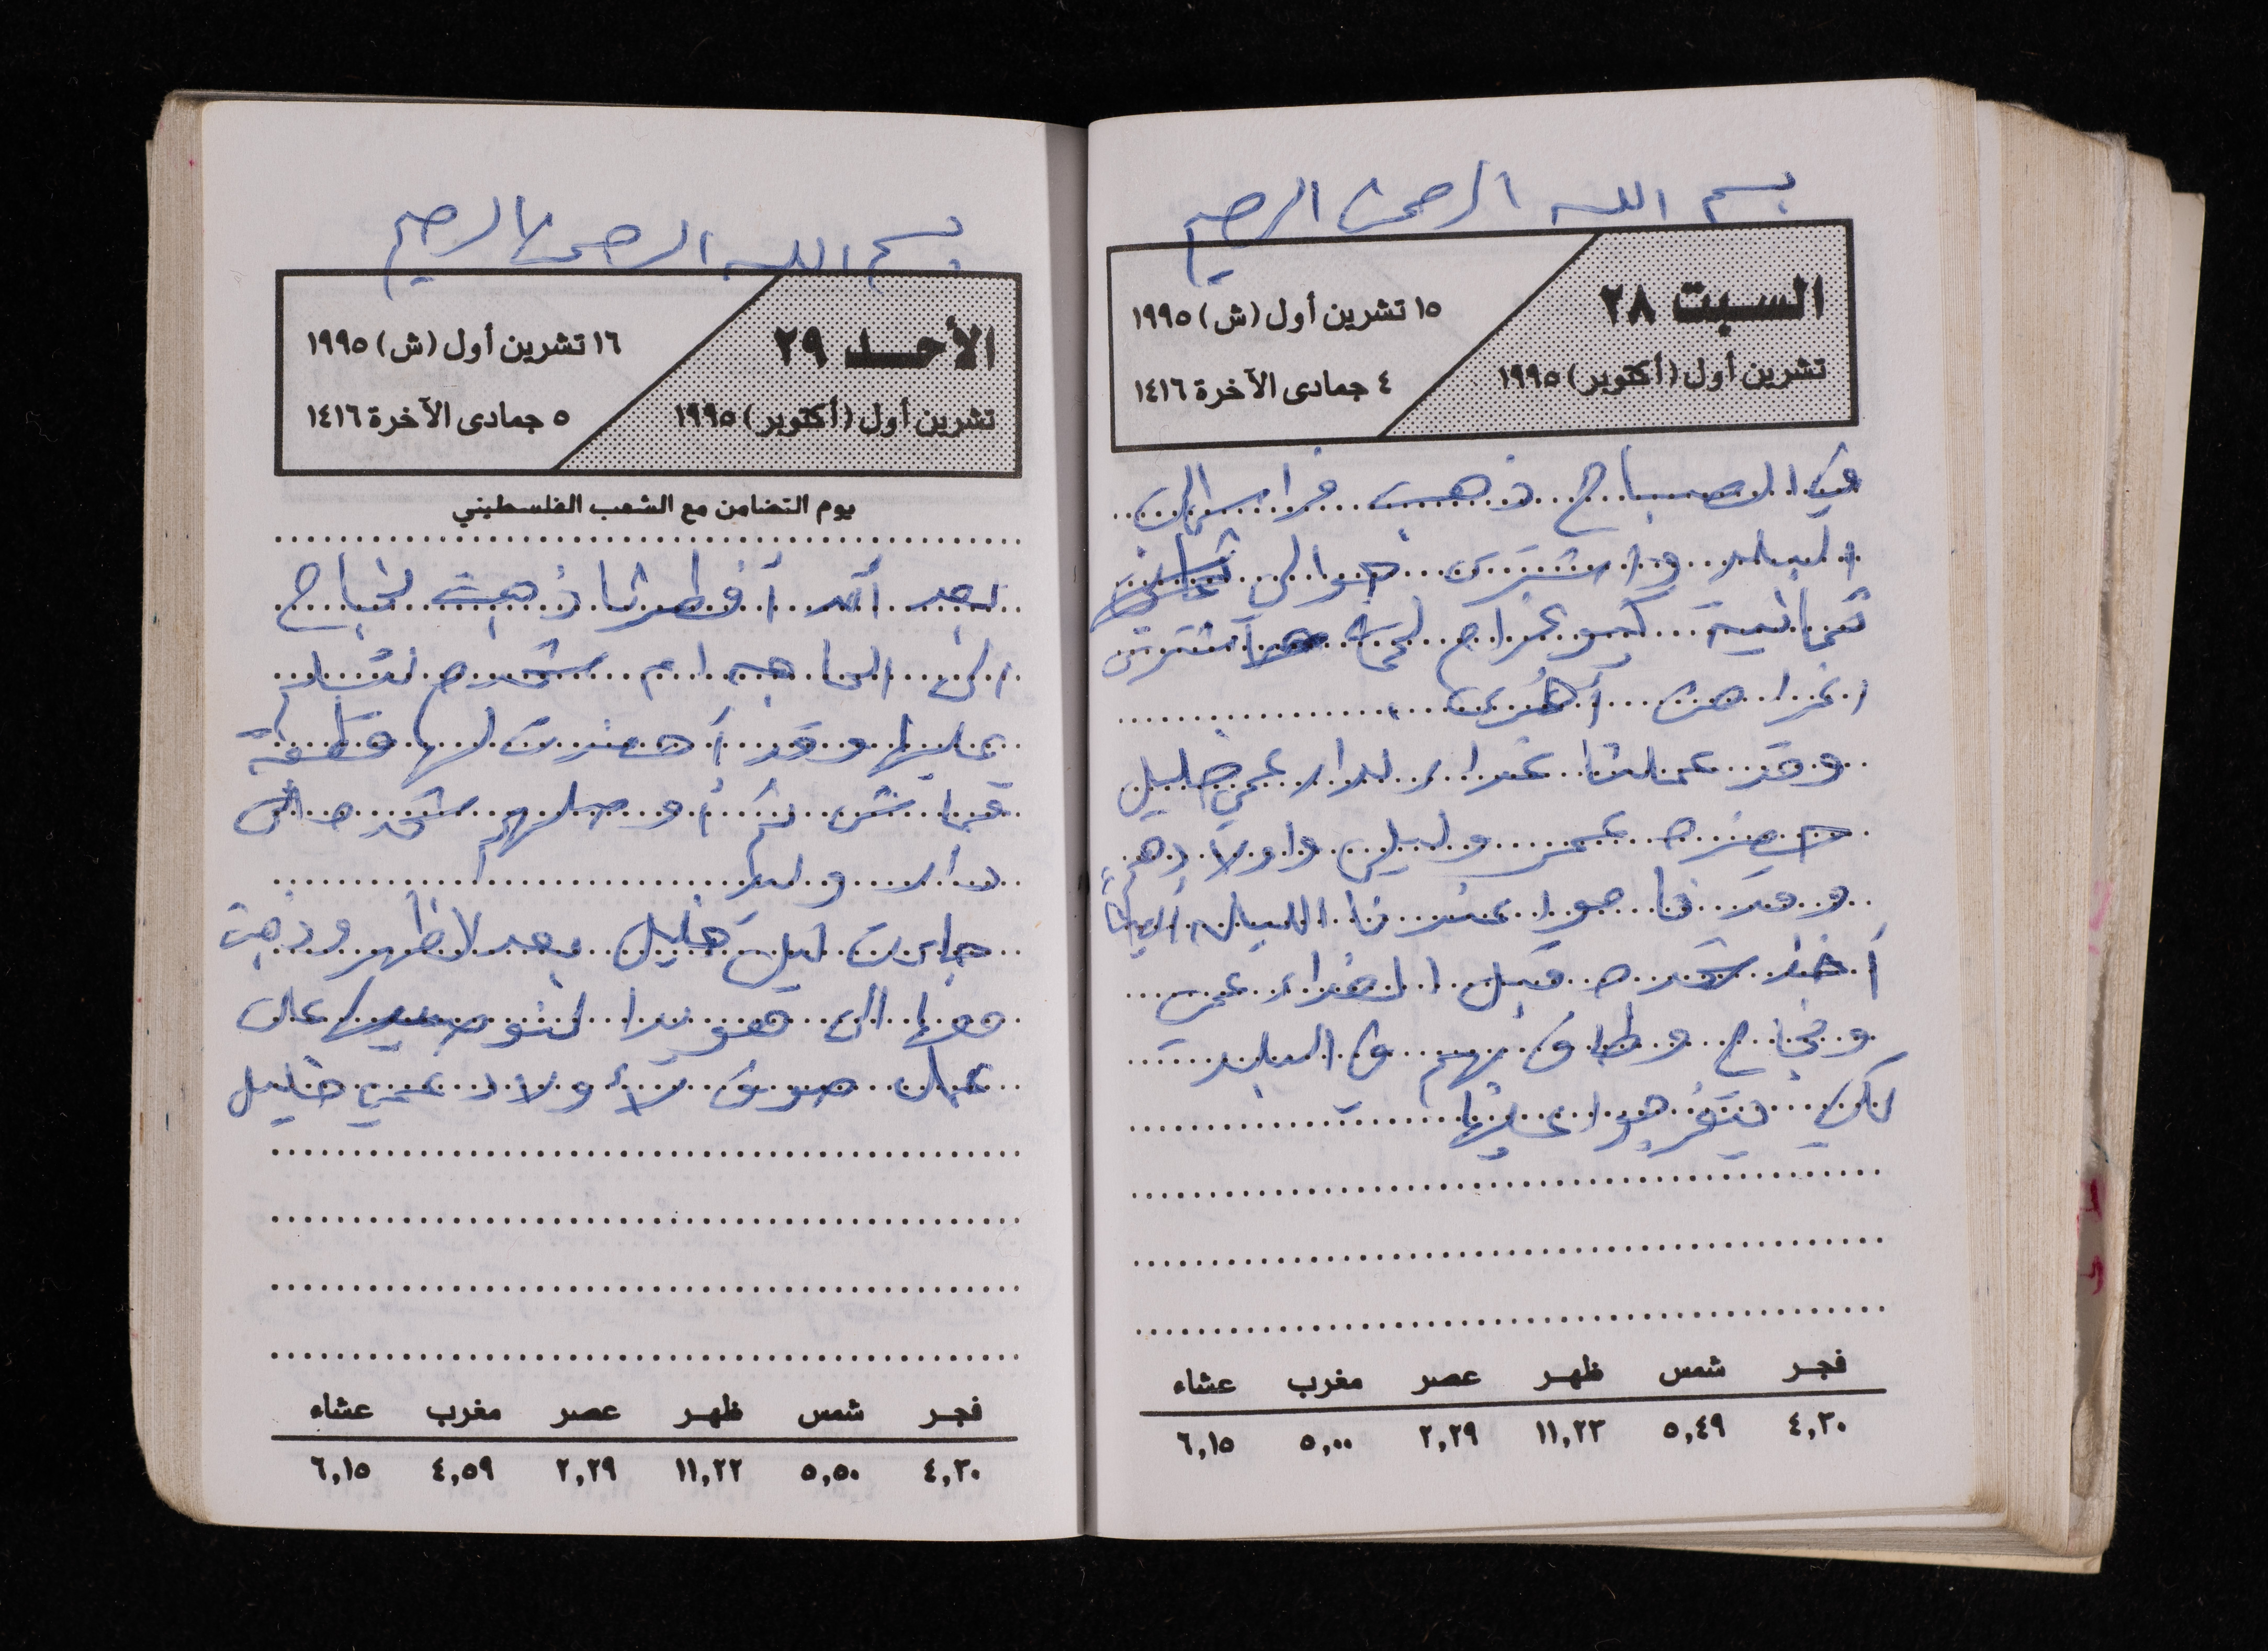 بسم الله الرحمن الرحيم
السبت ٢٨
تشرين أول (أكتوبر) ١٩٩٥
١٥ تشرين أول (ش) ١٩٩٥
٤ جمادى الآخرة ١٤١٦
في الصباح ذهب فراس الى
البلد واشترى حوالي
ثمانية كيو غرام لحمه اشترى
اغراض أخرى
وقد عملنا غداء لدار عمي خليل
حضره عمر وليلى واولادهم
وقد ناموا عندنا الليله أيضاً
أخذ شحده قبل الغداء عمي
ونجاح وطاف بهم في البلد
لكي يتفرجوا عليها
فجر شمس ظهر عصر مغرب عشاء
٤,٣٠ ٥,٤٩ ١١,٢٣ ٢,٢٩ ٥,٠٠ ٦,١٥
بسم الله الرحمن الرحيم
الأحد ٢٩
تشرين أول (أكتوبر) ١٩٩٥
١٦ تشرين أول (ش) ١٩٩٥
٥ جمادى الآخرة ١٤١٦
يوم التضامن مع الشعب الفلسطيني
بعد أن أفطرنا ذهبت نجاح
الى الحاجه ام شحده لتسلم
عليها وقد أحضرت لها قطعة
قماش ثم أوصلهم شحده الى
دار وليد
جاءت ليلى خليل بعد لاظهر وذهبت
معها الى هويدا لنوصيها على
عمل صوف لأولاد عمي خليل
فجر شمس ظهر عصر مغرب عشاء
٤,٣٠ ٥,٥٠ ١١,٢٢ ٢,٢٩ ٤,٥٩ ٦,١٥